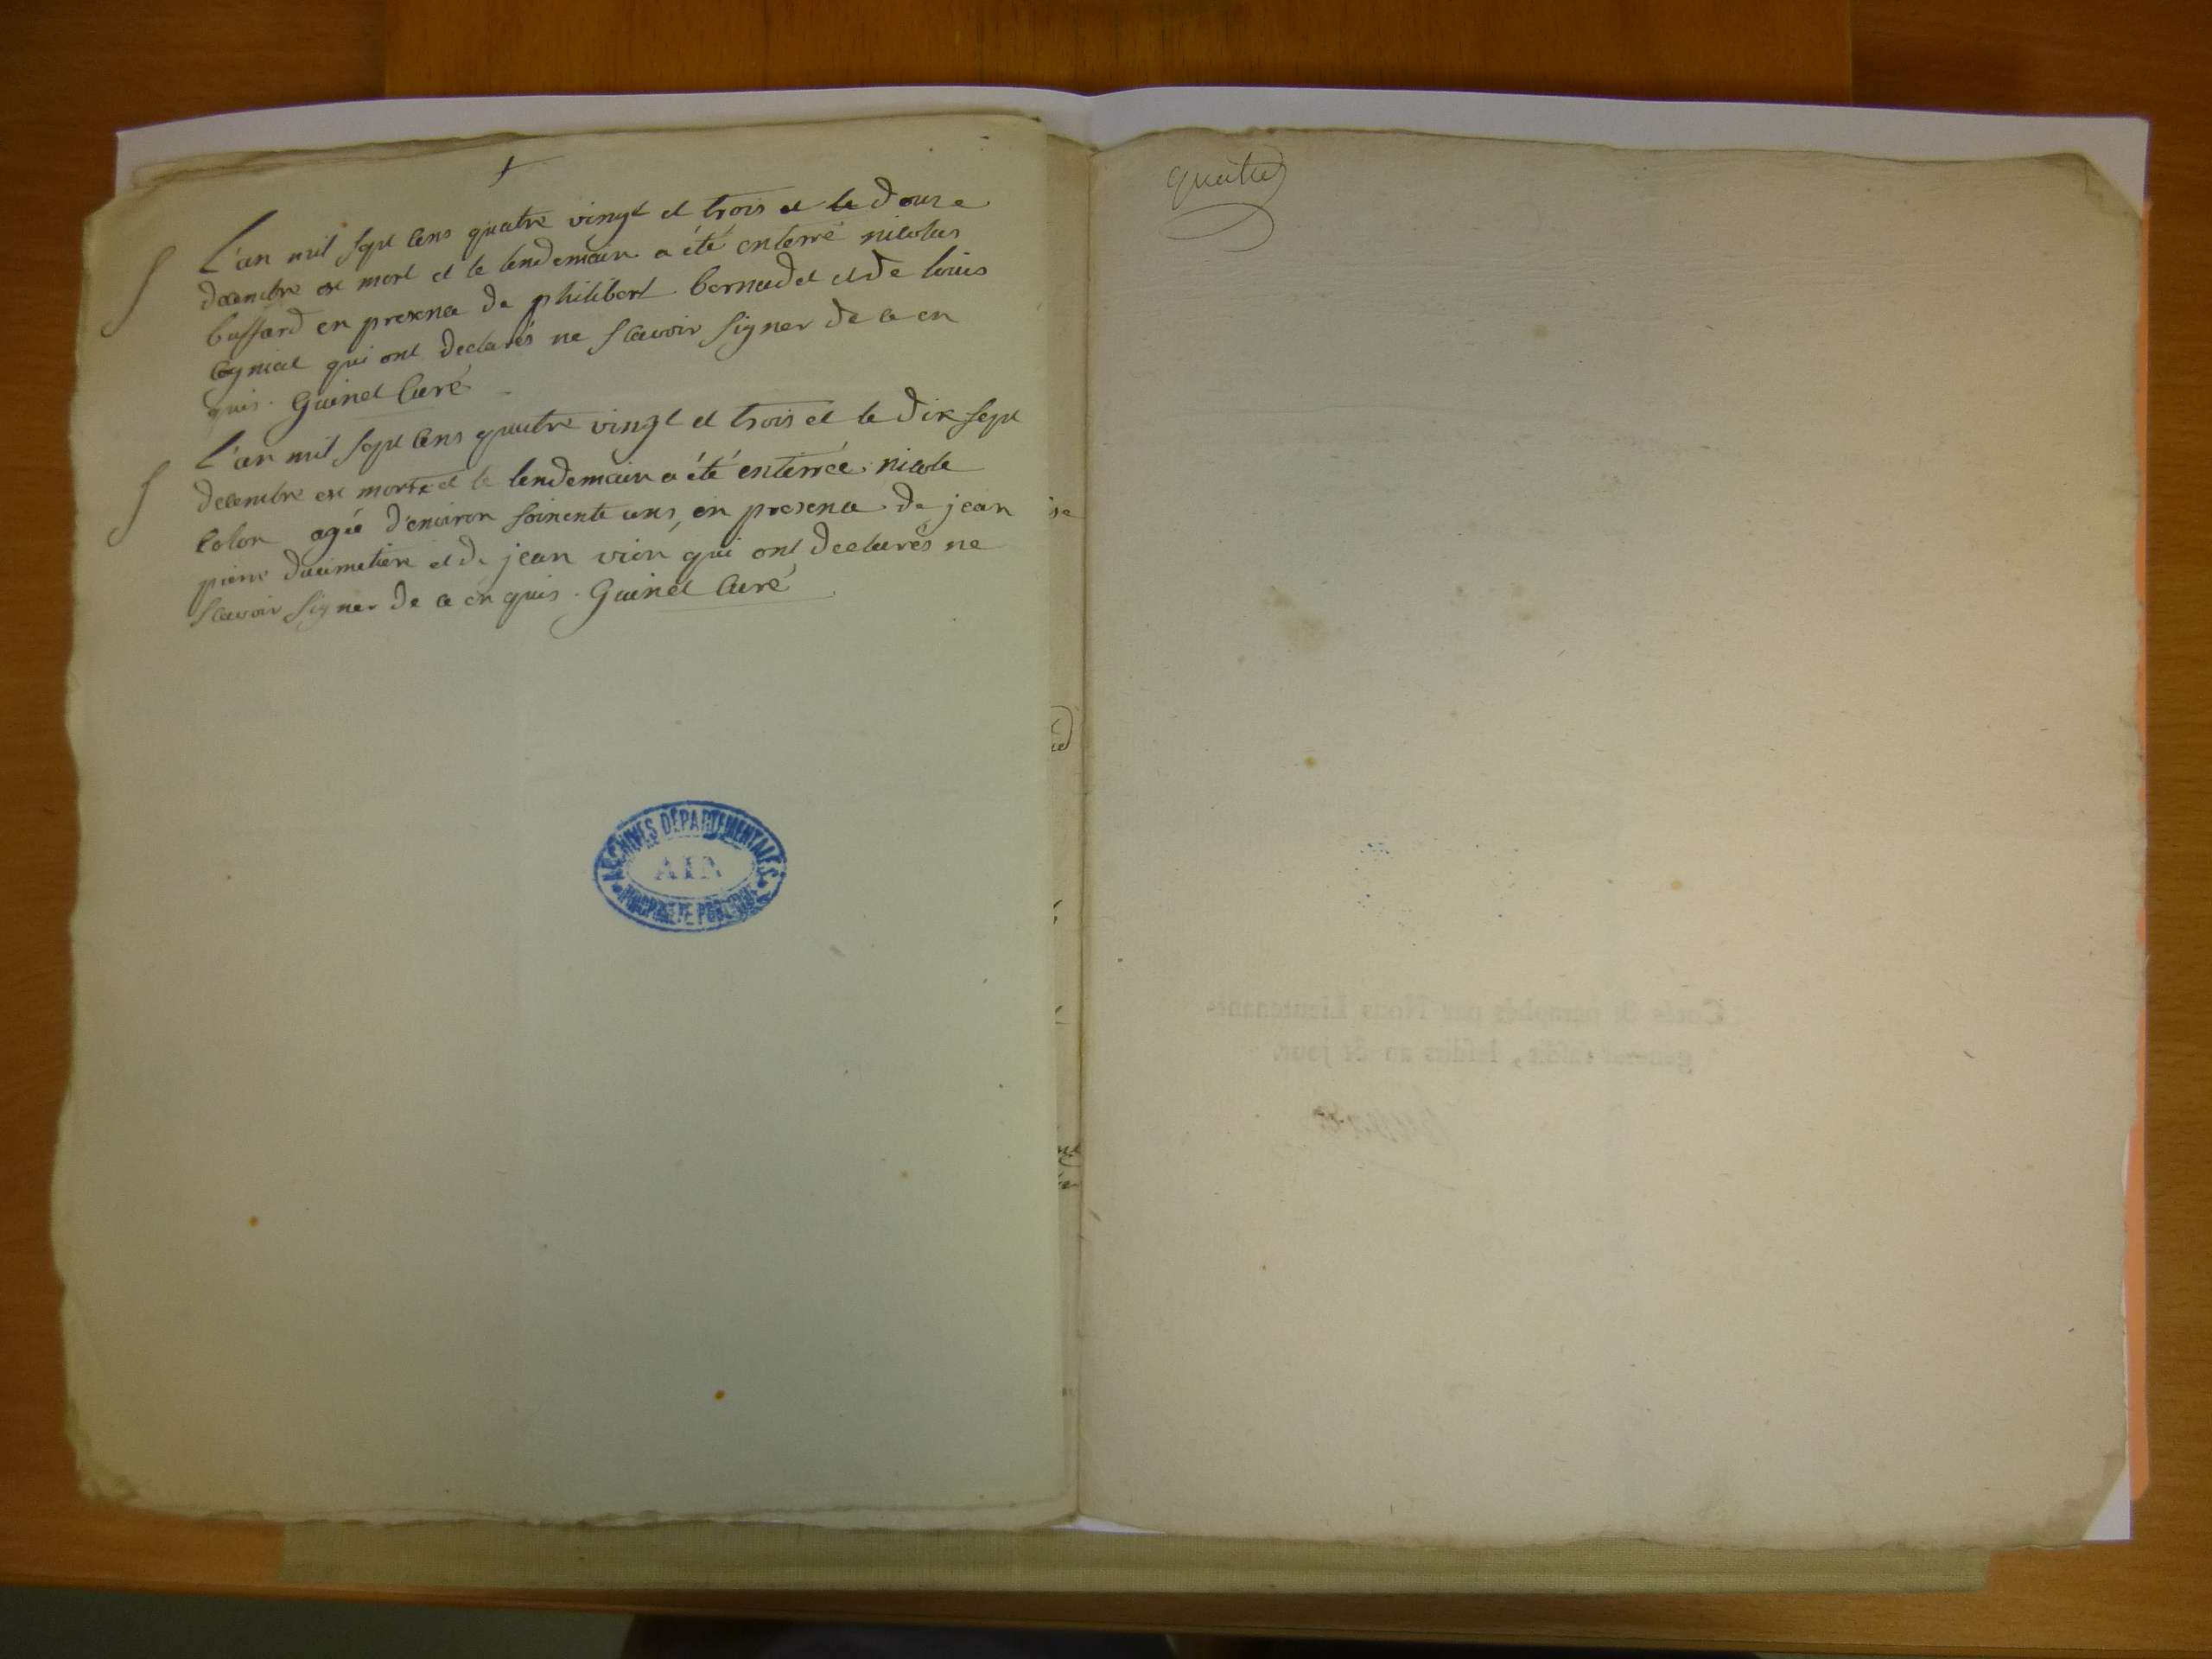 L'an mil sept cens quatre vingt et trois et le douze
decembre est mort et le lendemain a été enterré nicolas
buffard en presence de philibert bernadet et de louis
qui ont declarés ne sçavoir signer de ce en
quis. Guinet Curé
L'an mil sept cens quatre vingt et trois et le dix sept
decembre est morte et le lendemain a été enterrée nicole
colon agée d'environ soixente ans, en presence de jean
pierre ducimetiere et de jean vion qui ont declarés ne
sçavoir signer de ce en quis. Guinet Curé
ARCHIVES DÉPARTEMENTALES
AIN
PROPRIÉTÉ PUBLIQUE
quatre